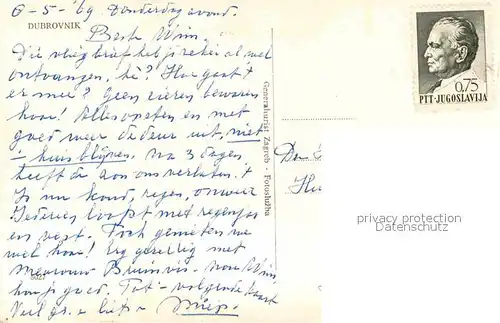 6-5-'69 Donderdag avond.
DUBROVNIK
Beste Wim.
Die vlieg brief heb je zeker al wel
ontvangen, hè? Hoe gaat 't
er mee? Geen eieren bewaren
hoor! Alles opeten en met
goed weer de deur uit, niet
in huis blijven. Na 3 dagen
heeft de zon ons verlaten. 't
Is nu koud, regen, onweer
Iedereen loopt met regenjas
en vest. Toch genieten we
wel hoor! Erg gezellig met
Mevrouw Bruinvis. Nou Wim,
hou je goed. Tot volgende kaart
Veel gr. en liefs Miep.
Generalturist Zagreb - Fotoslužba
0,75
PTT-JUGOSLAVIJA
privacy protection
Datenschutz